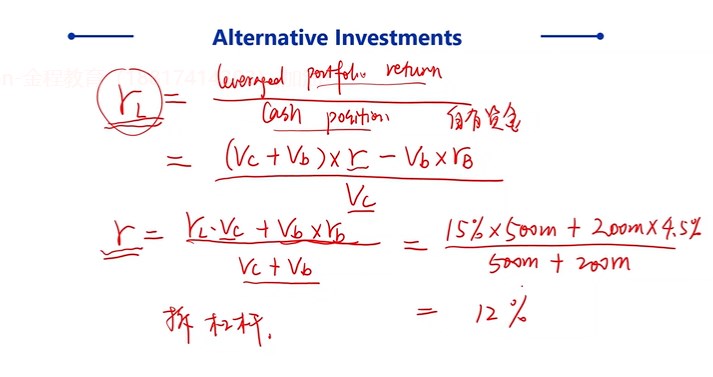 Alternative Investments
r_L = leveraged portfolio return / Cash position 自有资金
= (Vc + Vb) × r − Vb × rB / Vc
r = rL · Vc + Vb × rb / Vc + Vb = 15% × 500m + 200m × 4.5% / 500m + 200m
拆杠杆. = 12%